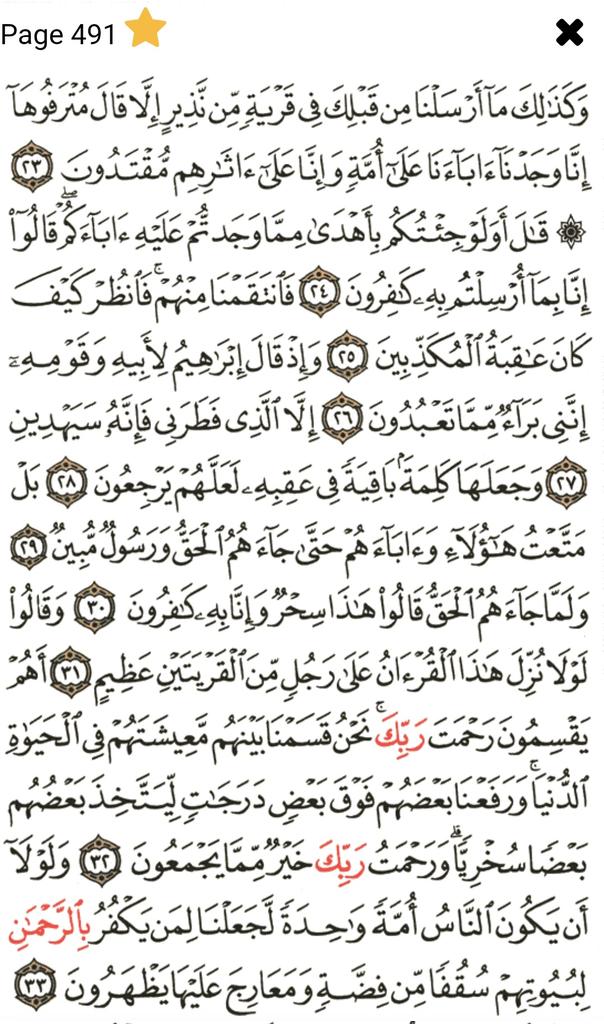 Page 491
وَكَذَٰلِكَ مَآ أَرْسَلْنَا مِن قَبْلِكَ فِى قَرْيَةٍ مِّن نَّذِيرٍ إِلَّا قَالَ مُتْرَفُوهَآ
إِنَّا وَجَدْنَآ ءَابَآءَنَا عَلَىٰٓ أُمَّةٍ وَإِنَّا عَلَىٰٓ ءَاثَٰرِهِم مُّقْتَدُونَ ٢٣
۞ قَٰلَ أَوَلَوْ جِئْتُكُم بِأَهْدَىٰ مِمَّا وَجَدتُّمْ عَلَيْهِ ءَابَآءَكُمْۖ قَالُوٓا۟
إِنَّا بِمَآ أُرْسِلْتُم بِهِۦ كَٰفِرُونَ ٢٤ فَٱنتَقَمْنَا مِنْهُمْۚ فَٱنظُرْ كَيْفَ
كَانَ عَٰقِبَةُ ٱلْمُكَذِّبِينَ ٢٥ وَإِذْ قَالَ إِبْرَٰهِيمُ لِأَبِيهِ وَقَوْمِهِۦٓ
إِنَّنِى بَرَآءٌ مِّمَّا تَعْبُدُونَ ٢٦ إِلَّا ٱلَّذِى فَطَرَنِى فَإِنَّهُۥ سَيَهْدِينِ
٢٧ وَجَعَلَهَا كَلِمَةًۢ بَاقِيَةً فِى عَقِبِهِۦ لَعَلَّهُمْ يَرْجِعُونَ ٢٨ بَلْ
مَتَّعْتُ هَٰٓؤُلَآءِ وَءَابَآءَهُمْ حَتَّىٰ جَآءَهُمُ ٱلْحَقُّ وَرَسُولٌ مُّبِينٌ ٢٩
وَلَمَّا جَآءَهُمُ ٱلْحَقُّ قَالُوا۟ هَٰذَا سِحْرٌ وَإِنَّا بِهِۦ كَٰفِرُونَ ٣٠ وَقَالُوا۟
لَوْلَا نُزِّلَ هَٰذَا ٱلْقُرْءَانُ عَلَىٰ رَجُلٍ مِّنَ ٱلْقَرْيَتَيْنِ عَظِيمٍ ٣١ أَهُمْ
يَقْسِمُونَ رَحْمَتَ رَبِّكَۚ نَحْنُ قَسَمْنَا بَيْنَهُم مَّعِيشَتَهُمْ فِى ٱلْحَيَوٰةِ
ٱلدُّنْيَاۚ وَرَفَعْنَا بَعْضَهُمْ فَوْقَ بَعْضٍ دَرَجَٰتٍ لِّيَتَّخِذَ بَعْضُهُم
بَعْضًا سُخْرِيًّاۗ وَرَحْمَتُ رَبِّكَ خَيْرٌ مِّمَّا يَجْمَعُونَ ٣٢ وَلَوْلَآ
أَن يَكُونَ ٱلنَّاسُ أُمَّةً وَٰحِدَةً لَّجَعَلْنَا لِمَن يَكْفُرُ بِٱلرَّحْمَٰنِ
لِبُيُوتِهِمْ سُقُفًا مِّن فِضَّةٍ وَمَعَارِجَ عَلَيْهَا يَظْهَرُونَ ٣٣